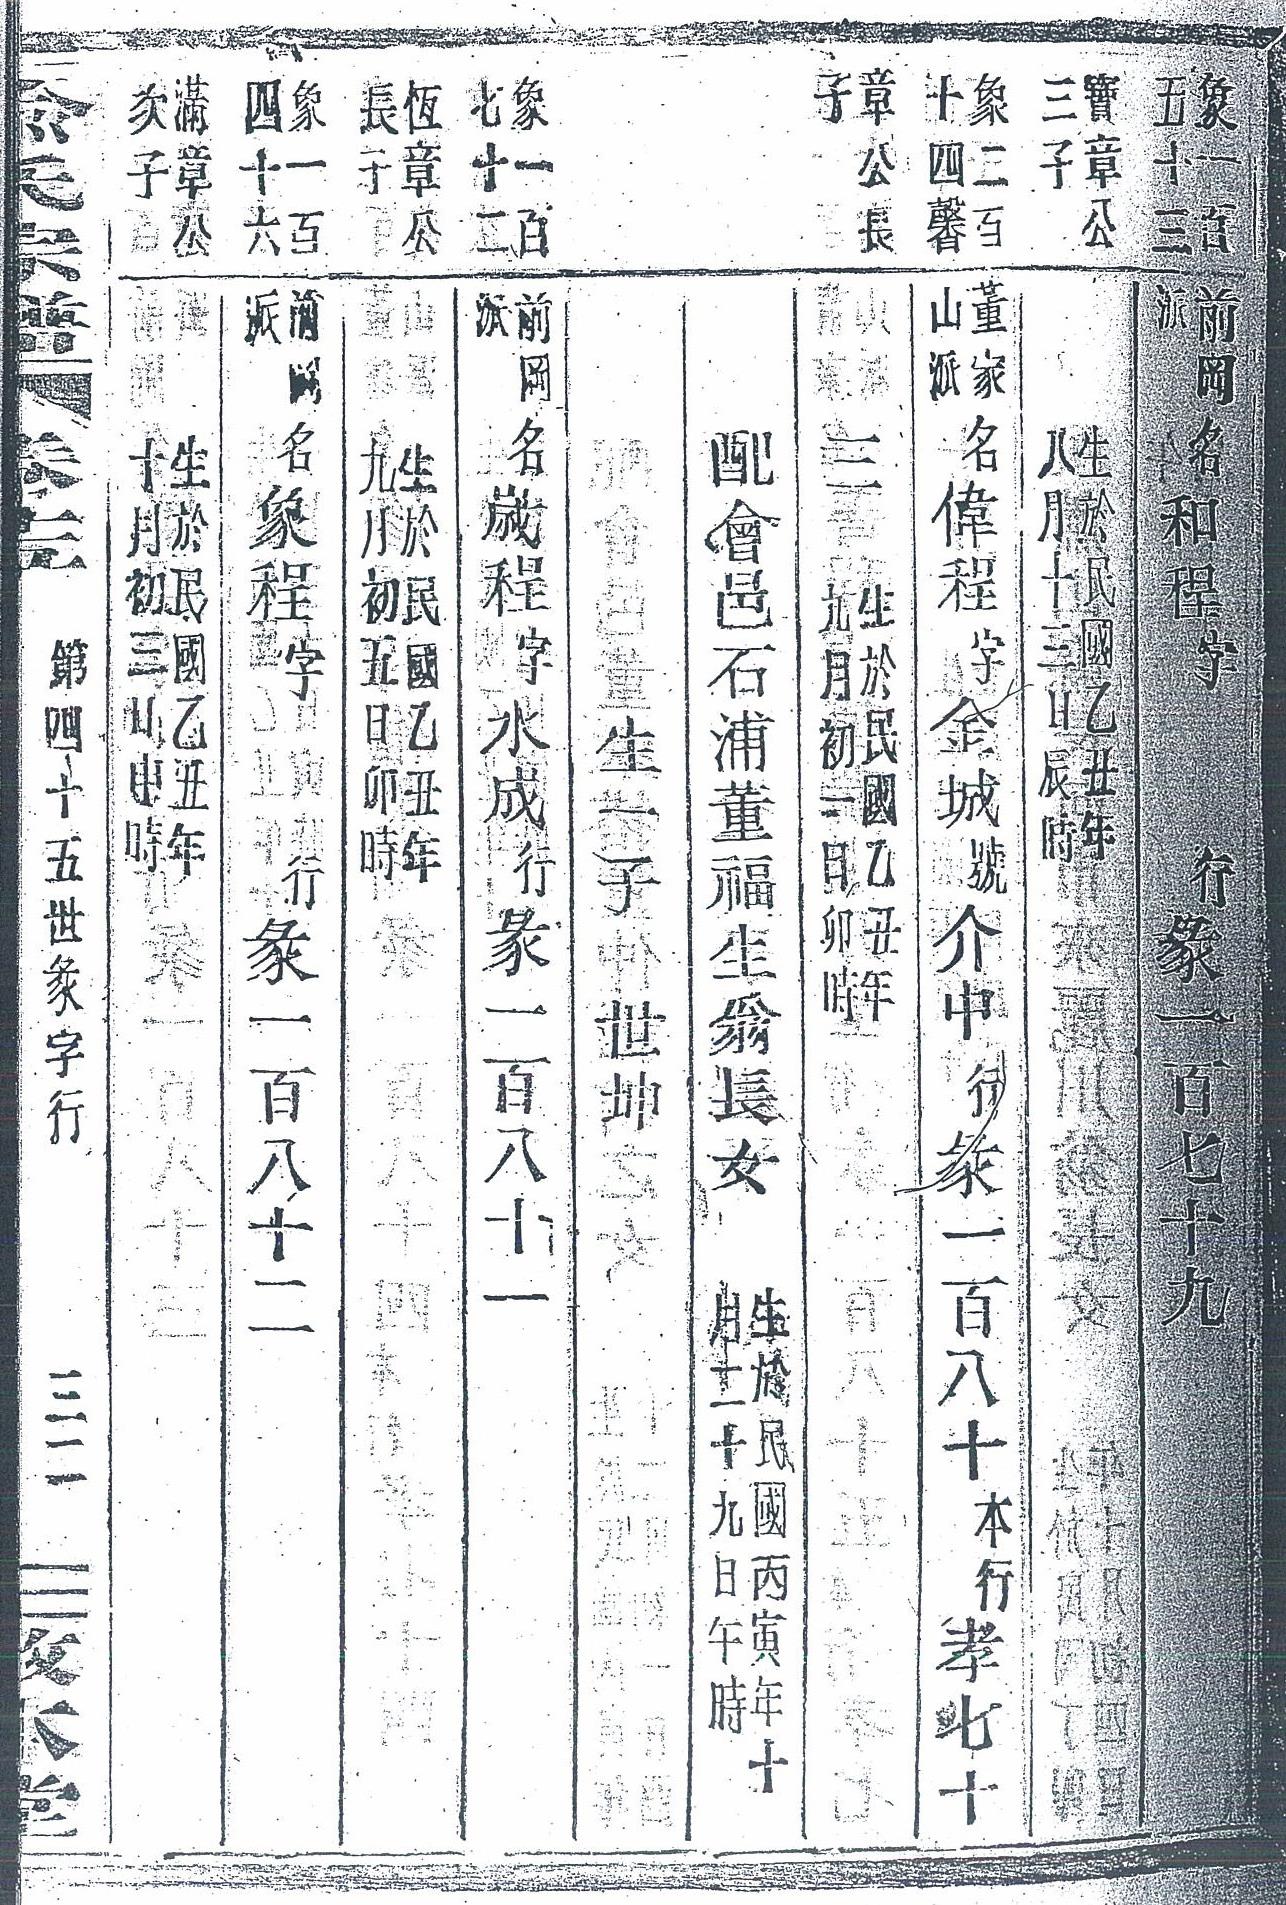 象一百五十三 前岡派 名和程字 行彖一百七十九
寶章公三子 生於民國乙丑年八月十三日辰時
象二百十四馨 董家山派 名偉程字金城號介中行彖一百八十本行孝七十
章公長子 三 生於民國乙丑年九月初一日卯時
配會邑石浦董福生翁長女 生於民國丙寅年十月二十九日午時
生一子 世坤
象一百七十二 前岡派 名歲程字水成行彖一百八十一
恆章公長子 生於民國乙丑年九月初五日卯時
象一百四十六 前岡派 名象程字 行彖一百八十二
滿章公次子 生於民國乙丑年十月初三日申時
氏宗譜 卷三 第四十五世彖字行 三二一 敦本堂